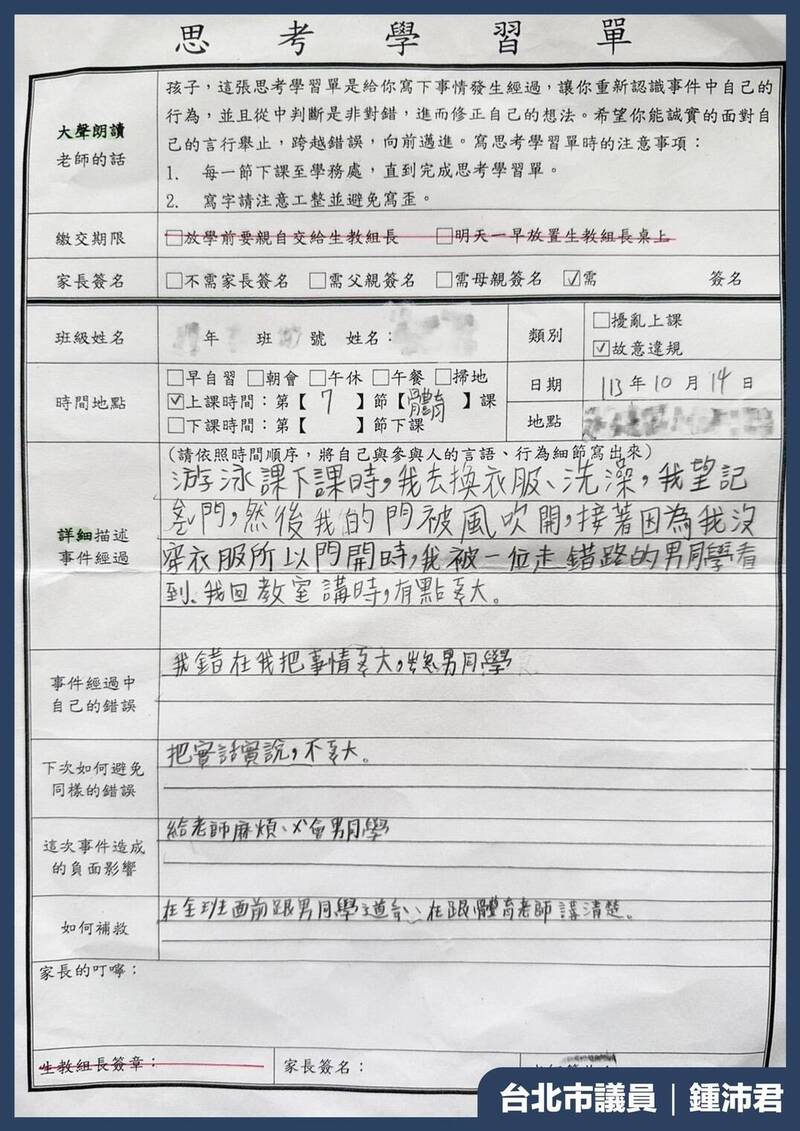 思考學習單
大聲朗讀
老師的話
孩子，這張思考學習單是給你寫下事情發生經過，讓你重新認識事件中自己的
行為，並且從中判斷是非對錯，進而修正自己的想法。希望你能誠實的面對自
己的言行舉止，跨越錯誤，向前邁進。寫思考學習單時的注意事項：
1. 每一節下課至學務處，直到完成思考學習單。
2. 寫字請注意工整並避免寫歪。
繳交期限
□放學前要親自交給生教組長 □明天一早放置生教組長桌上
家長簽名
□不需家長簽名 □需父親簽名 □需母親簽名 ☑需 簽名
班級姓名
年 班 號 姓名：
類別
□擾亂上課
☑故意違規
時間地點
□早自習 □朝會 □午休 □午餐 □掃地
☑上課時間：第【 7 】節【體育】課
□下課時間：第【 】節下課
日期
113年10月14日
地點
詳細描述
事件經過
(請依照時間順序，將自己與參與人的言語、行為細節寫出來)
游泳課下課時，我去換衣服、洗澡，我望記
門，然後我的門被風吹開，接著因為我沒
穿衣服所以門開時，我被一位走錯路的男同學看
到、我回教室講時，有點ㄎㄨㄚ大。
事件經過中
自己的錯誤
我錯在我把事情大，男同學
下次如何避免
同樣的錯誤
把實話實說，不大。
這次事件造成
的負面影響
給老師麻煩、會男同學
如何補救
在全班面前跟男同學道、在跟體育老師講清楚。
家長的叮嚀：
生教組長簽章：
家長簽名：
台北市議員｜鍾沛君